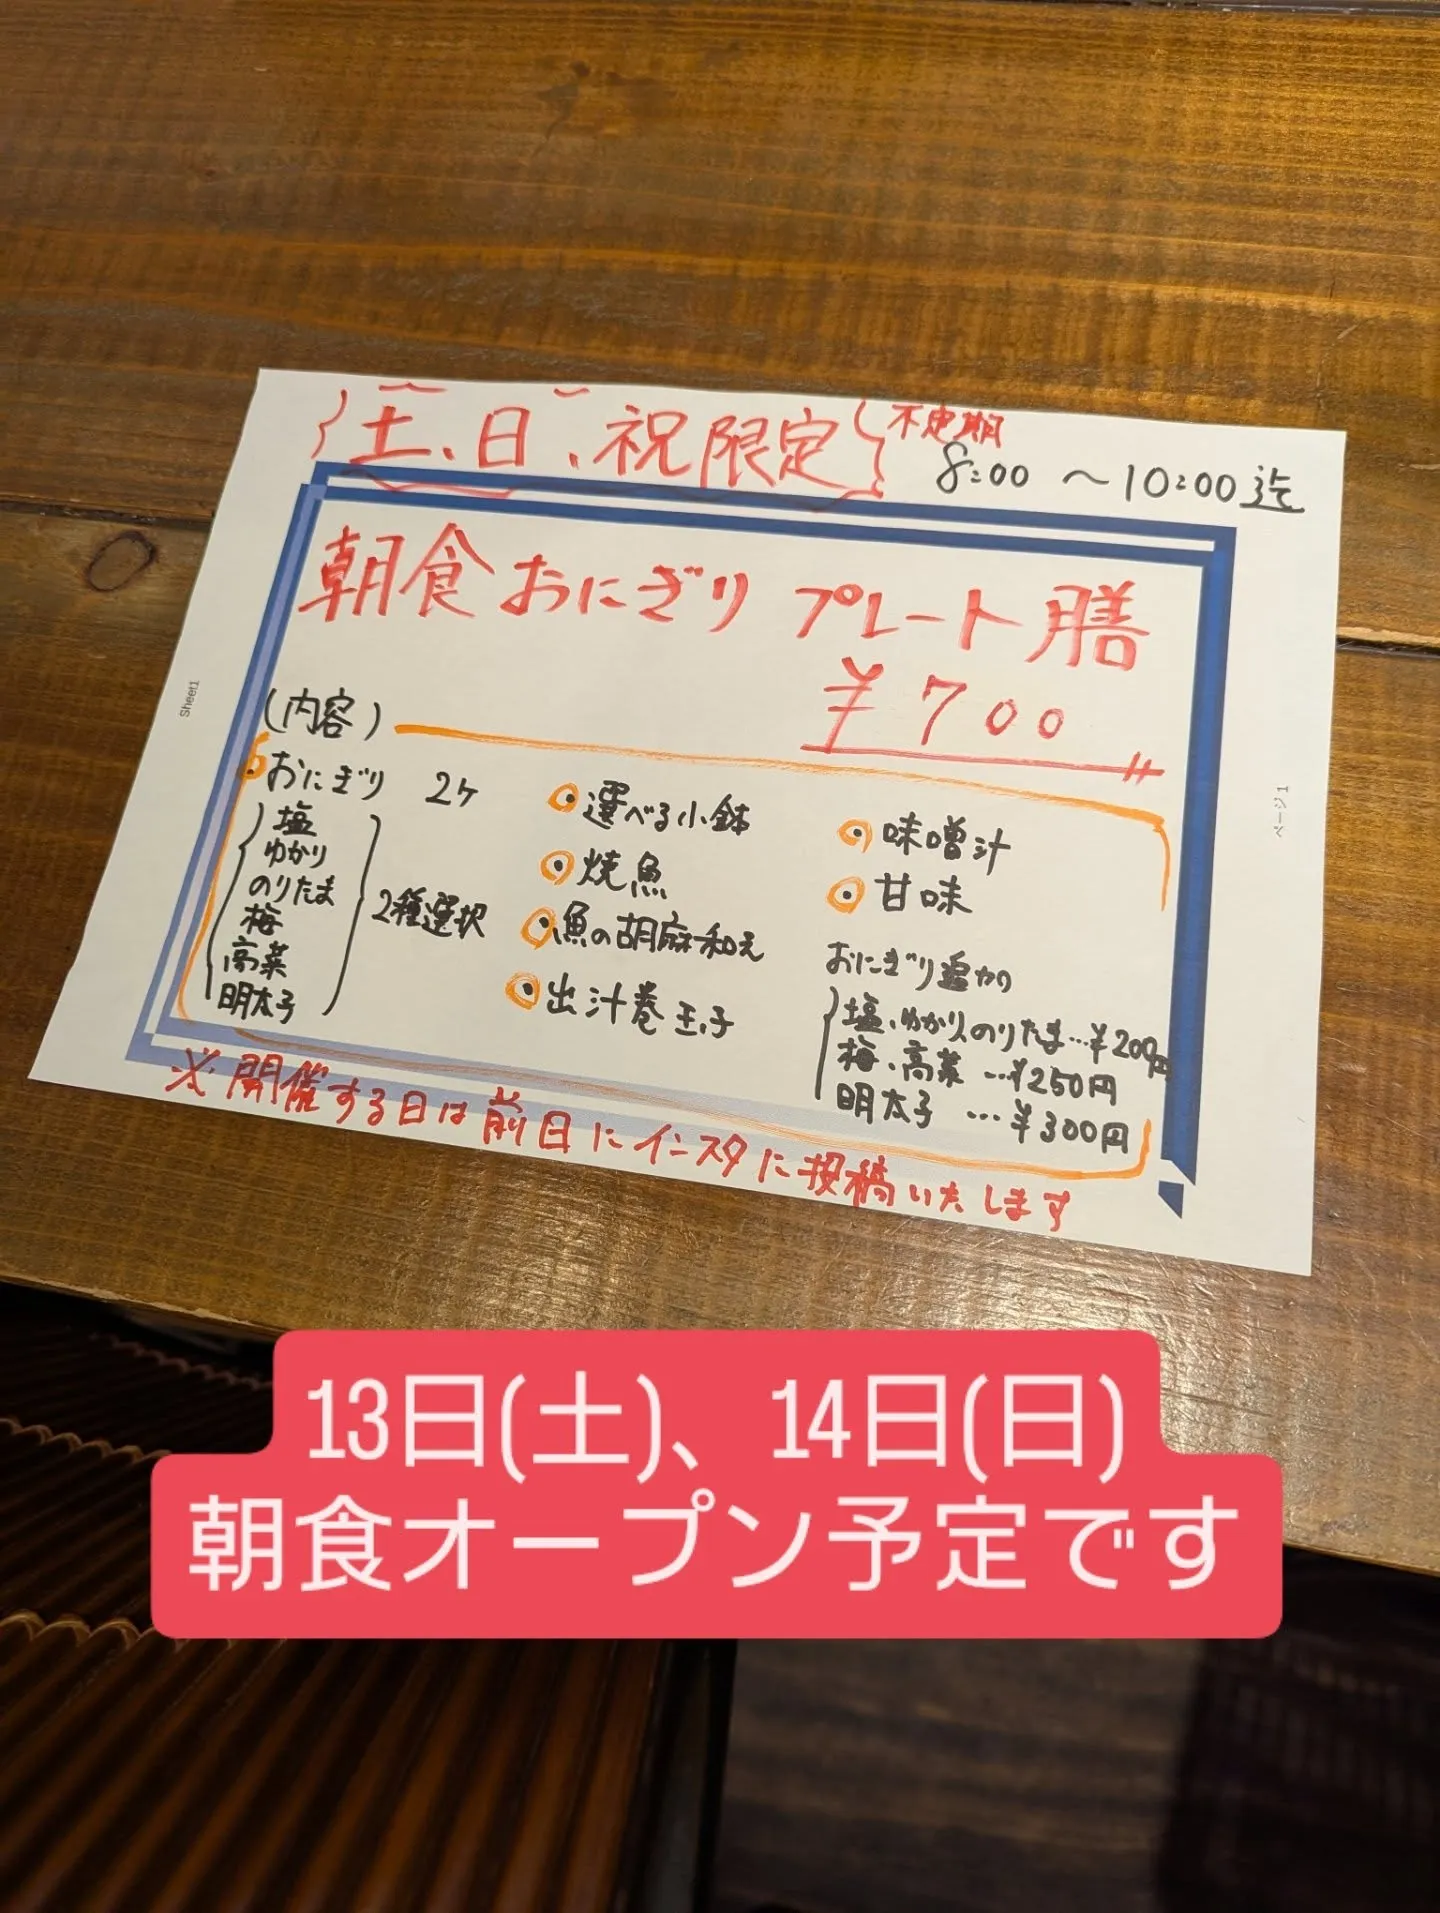 土、日、祝限定
不定期
8:00 〜10:00迄
朝食おにぎりプレート膳
¥700
(内容)
おにぎり 2ヶ
塩
ゆかり
のりたま
梅
高菜
明太子
2種選択
選べる小鉢
焼魚
魚の胡麻和え
出汁巻玉子
味噌汁
甘味
おにぎり追加
塩、ゆかり、のりたま…¥200円
梅、高菜 …¥250円
明太子 …¥300円
※開催する日は前日にインスタに投稿いたします
Sheet1
ページ1
13日(土)、14日(日)
朝食オープン予定です